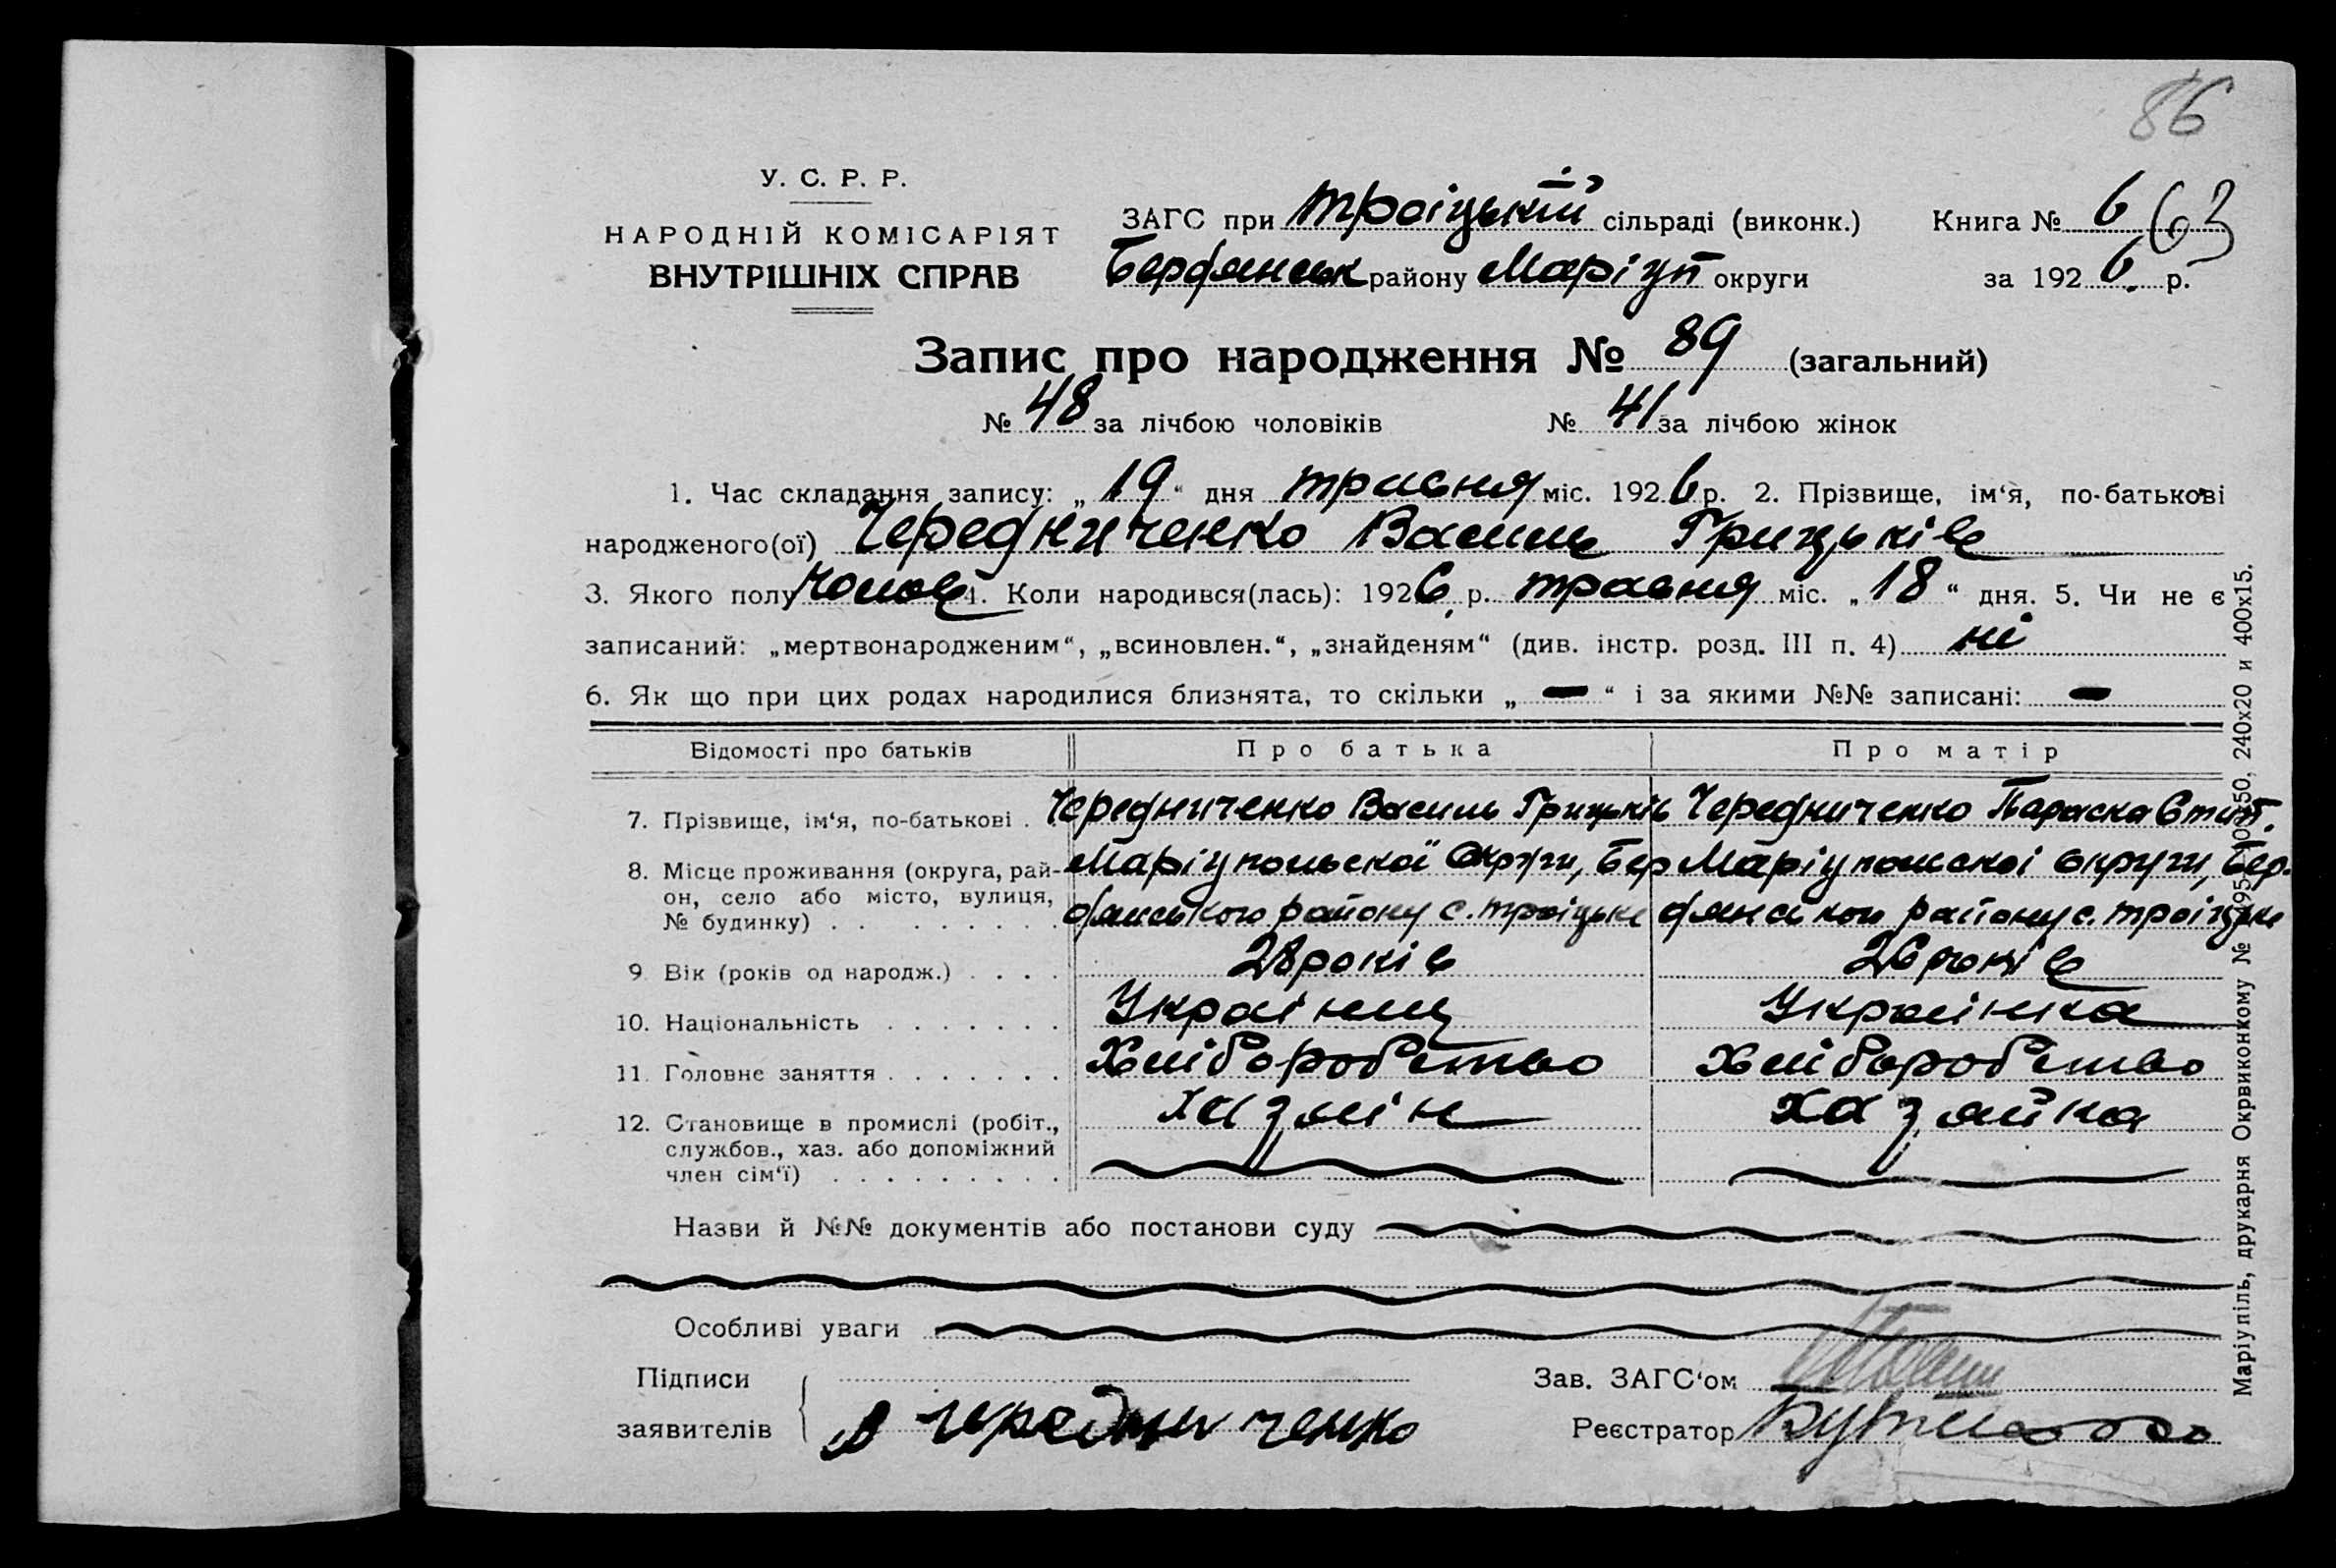 86
У. С. Р. Р.
НАРОДНІЙ КОМІСАРІЯТ
ВНУТРІШНІХ СПРАВ
ЗАГС при Троіцькій сільраді (виконк.) Книга № 6 63
Бердянськ району Маріуп округи за 1926 р.
Запис про народження № 89 (загальний)
№ 48 за лічбою чоловіків № 41 за лічбою жінок
1. Час складання запису: „19“ дня травня міс. 1926 р. 2. Прізвище, ім‘я, по-батькові
народженого(ої) Чередниченко Василь Грицьків
3. Якого полу чолов 4. Коли народився(лась): 1926 р. травня міс. „18“ дня. 5. Чи не є
записаний: „мертвонародженим“, „всиновлен.“, „знайденям“ (див. інстр. розд. III п. 4) ні
6. Як що при цих родах народилися близнята, то скільки „ — “ і за якими №№ записані: —
Відомості про батьків Про батька Про матір
7. Прізвище, ім‘я, по-батькові . Чередниченко Василь Грицьків Чередниченко Параска
8. Місце проживання (округа, рай- Маріупольскоі Округи, Бер Маріупольскоі округи, Бер-
он, село або місто, вулиця, дянського району с. Троіцьке дянського району с. Троіцьке
№ будинку)
9. Вік (років од народж.) 28 років 26 років
10. Національність Украінец Украінка
11. Головне заняття Хліборобство Хліборобство
12. Становище в промислі (робіт., хазяін хазяйка
службов., хаз. або допоміжний
член сім‘ї)
Назви й №№ документів або постанови суду
Особливі уваги
Підписи Зав. ЗАГС‘ом
заявителів В Чередниченко Реєстратор
Маріупіль, друкарня Окрвиконкому № 240х20 и 400х15.